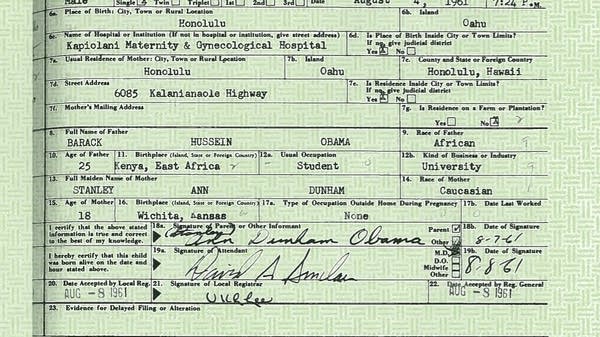 Male Single Twin Triplet 1st 2nd 3rd Date August 4, 1961 7:24 P.M.
6a. Place of Birth: City, Town or Rural Location 6b. Island
Honolulu Oahu
6c. Name of Hospital or Institution (If not in hospital or institution, give street address) 6d. Is Place of Birth Inside City or Town Limits? If no, give judicial district
Kapiolani Maternity & Gynecological Hospital Yes X No
7a. Usual Residence of Mother: City, Town or Rural Location 7b. Island 7c. County and State or Foreign Country
Honolulu Oahu Honolulu, Hawaii
7d. Street Address 7e. Is Residence Inside City or Town Limits? If no, give judicial district
6085 Kalanianaole Highway Yes X No
7f. Mother's Mailing Address 7g. Is Residence on a Farm or Plantation?
Yes No X
8. Full Name of Father 9. Race of Father
BARACK HUSSEIN OBAMA African
10. Age of Father 11. Birthplace (Island, State or Foreign Country) 12a. Usual Occupation 12b. Kind of Business or Industry
25 Kenya, East Africa Student University
13. Full Maiden Name of Mother 14. Race of Mother
STANLEY ANN DUNHAM Caucasian
15. Age of Mother 16. Birthplace (Island, State or Foreign Country) 17a. Type of Occupation Outside Home During Pregnancy 17b. Date Last Worked
18 Wichita, Kansas None
I certify that the above stated information is true and correct to the best of my knowledge. 18a. Signature of Parent or Other Informant Parent Other 18b. Date of Signature
(Stanley) Ann Dunham Obama 8-7-61
I hereby certify that this child was born alive on the date and hour stated above. 19a. Signature of Attendant M.D. D.O. Midwife Other 19b. Date of Signature
David A Sinclair 8-8-61
20. Date Accepted by Local Reg. 21. Signature of Local Registrar 22. Date Accepted by Reg. General
AUG -8 1961 AUG -8 1961
23. Evidence for Delayed Filing or Alteration